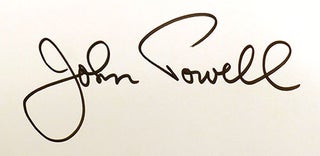 John Powell